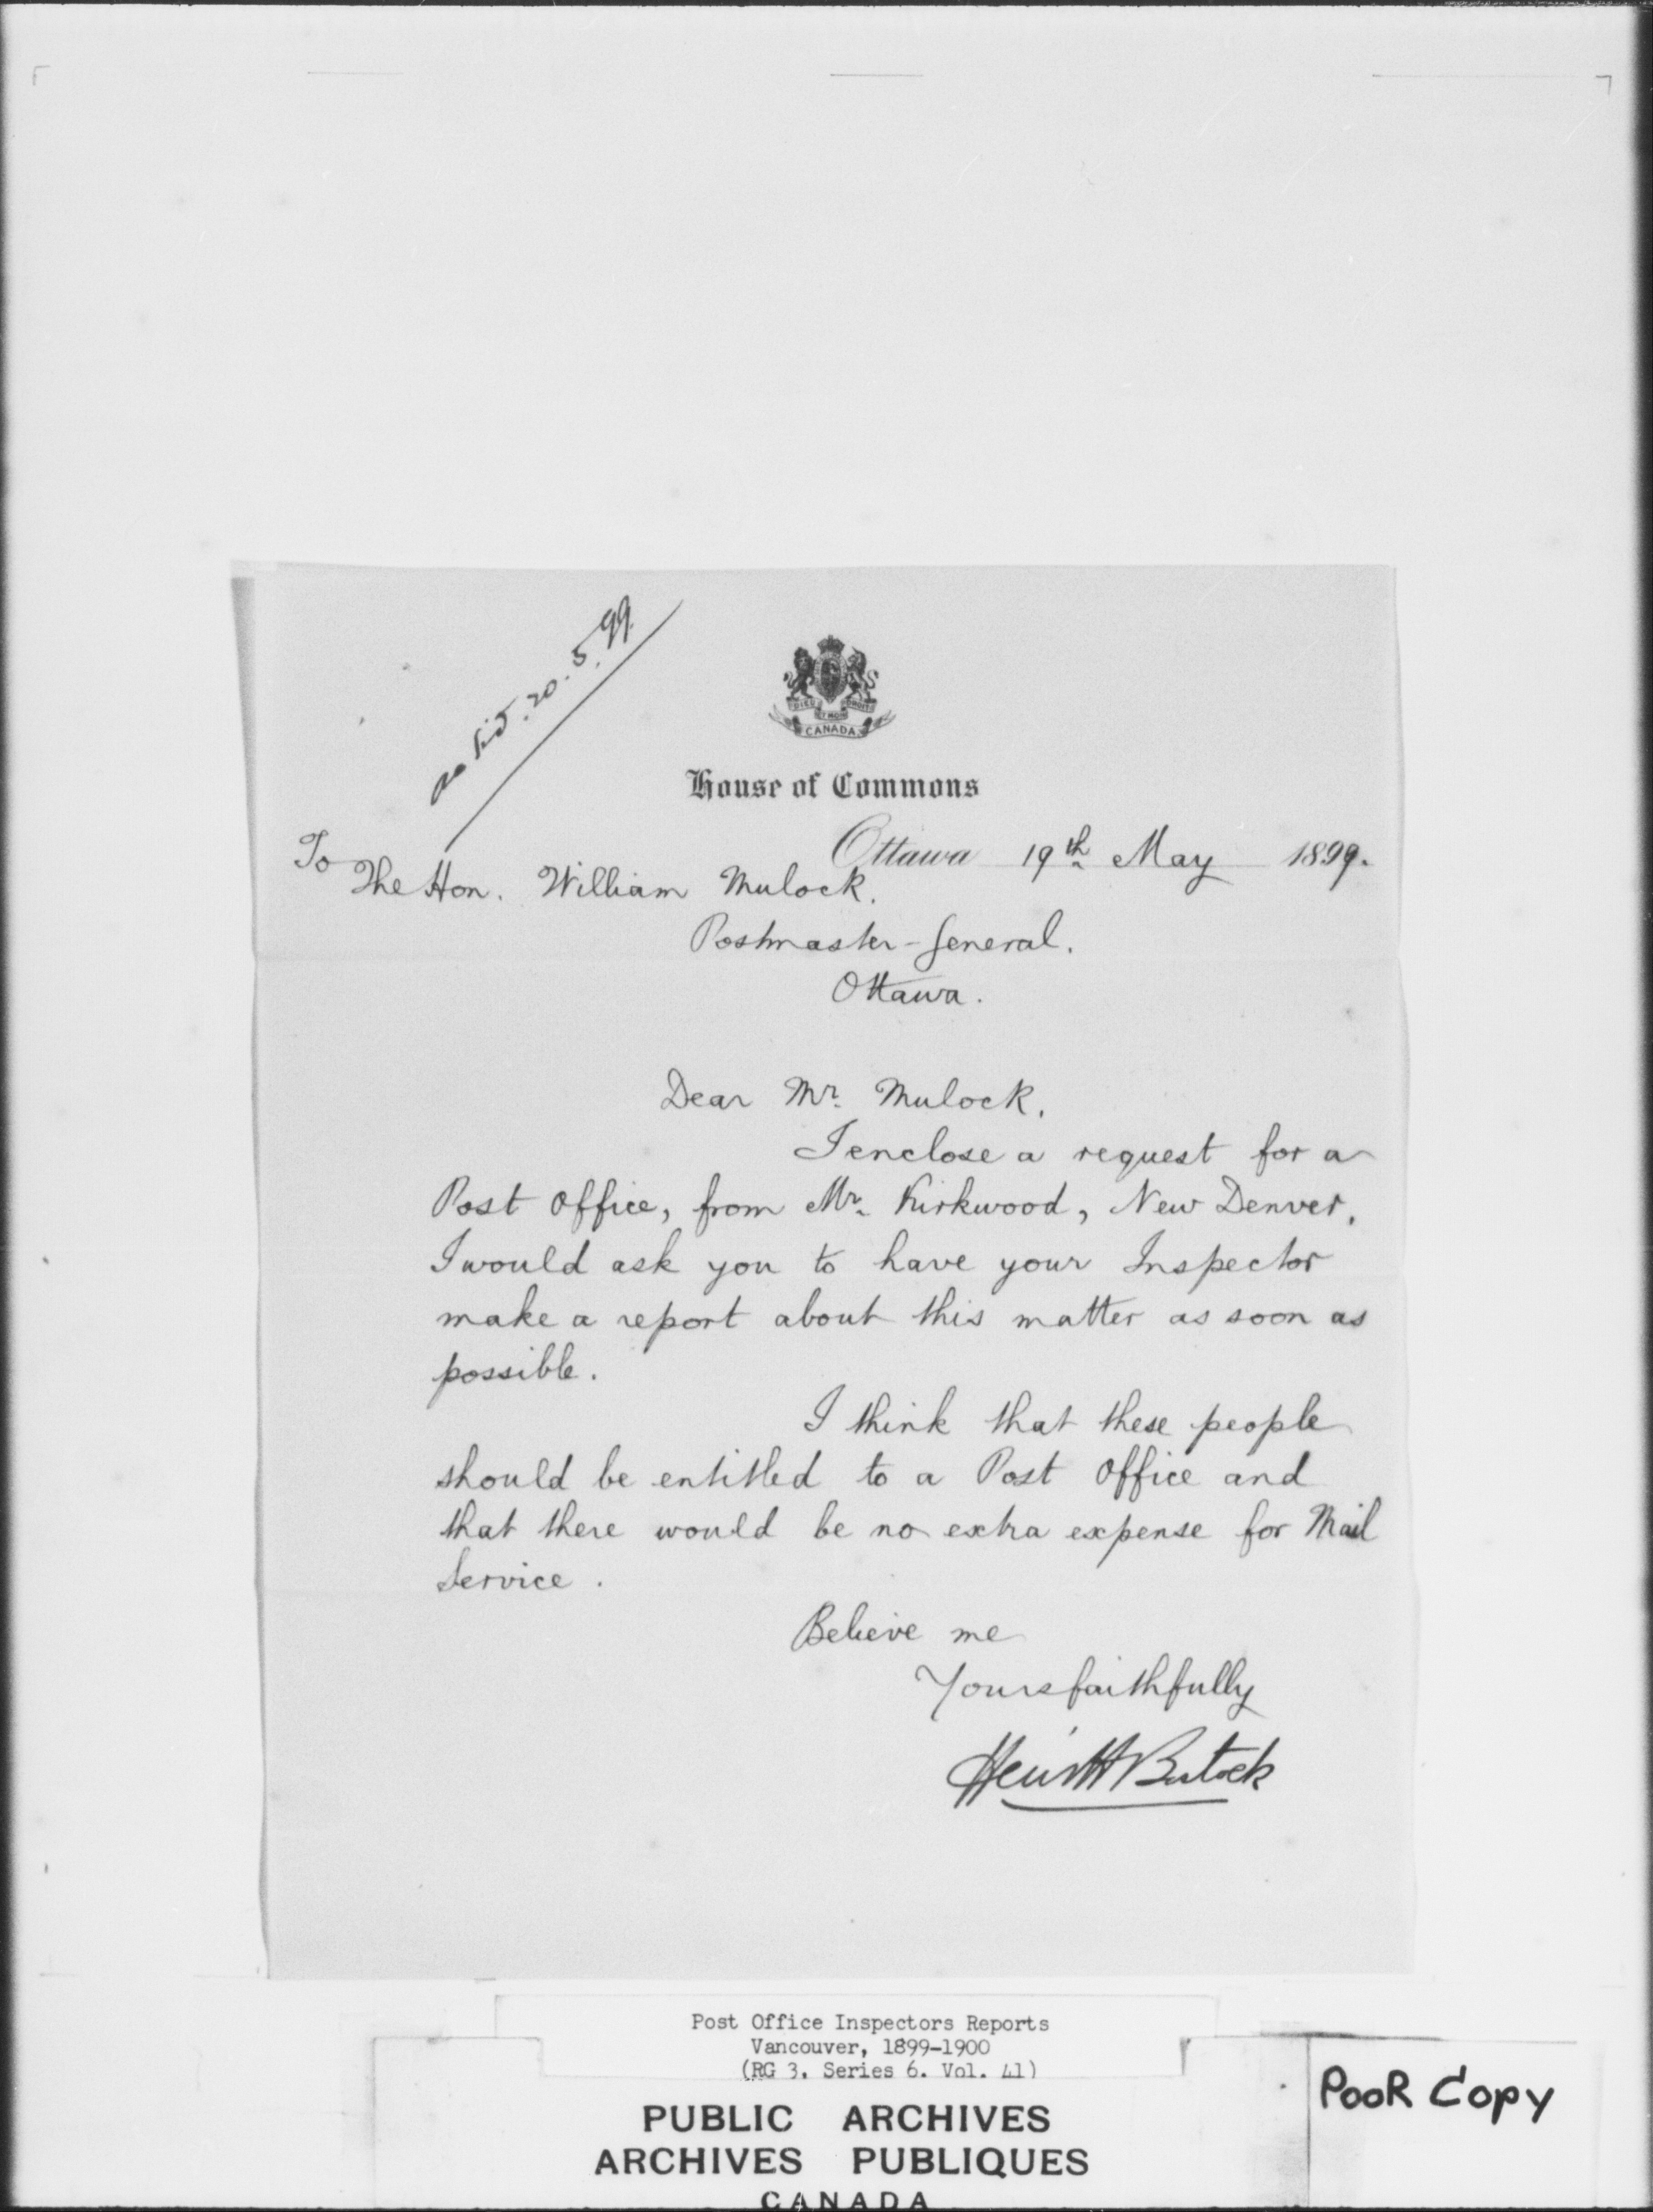 20.5.99
DIEU ET MON DROIT
CANADA
House of Commons
Ottawa 19th May 1899.
To
The Hon. William Mulock.
Postmaster-General.
Ottawa.
Dear Mr. Mulock.
I enclose a request for a
Post Office, from Mr. Kirkwood, New Denver.
I would ask you to have your Inspector
make a report about this matter as soon as
possible.
I think that these people
should be entitled to a Post Office and
that there would be no extra expense for Mail
Service.
Believe me
Yours faithfully
Hewitt Bostock
Post Office Inspectors Reports
Vancouver, 1899-1900
(RG 3, Series 6. Vol. 41)
PUBLIC ARCHIVES
ARCHIVES PUBLIQUES
CANADA
POOR COPY